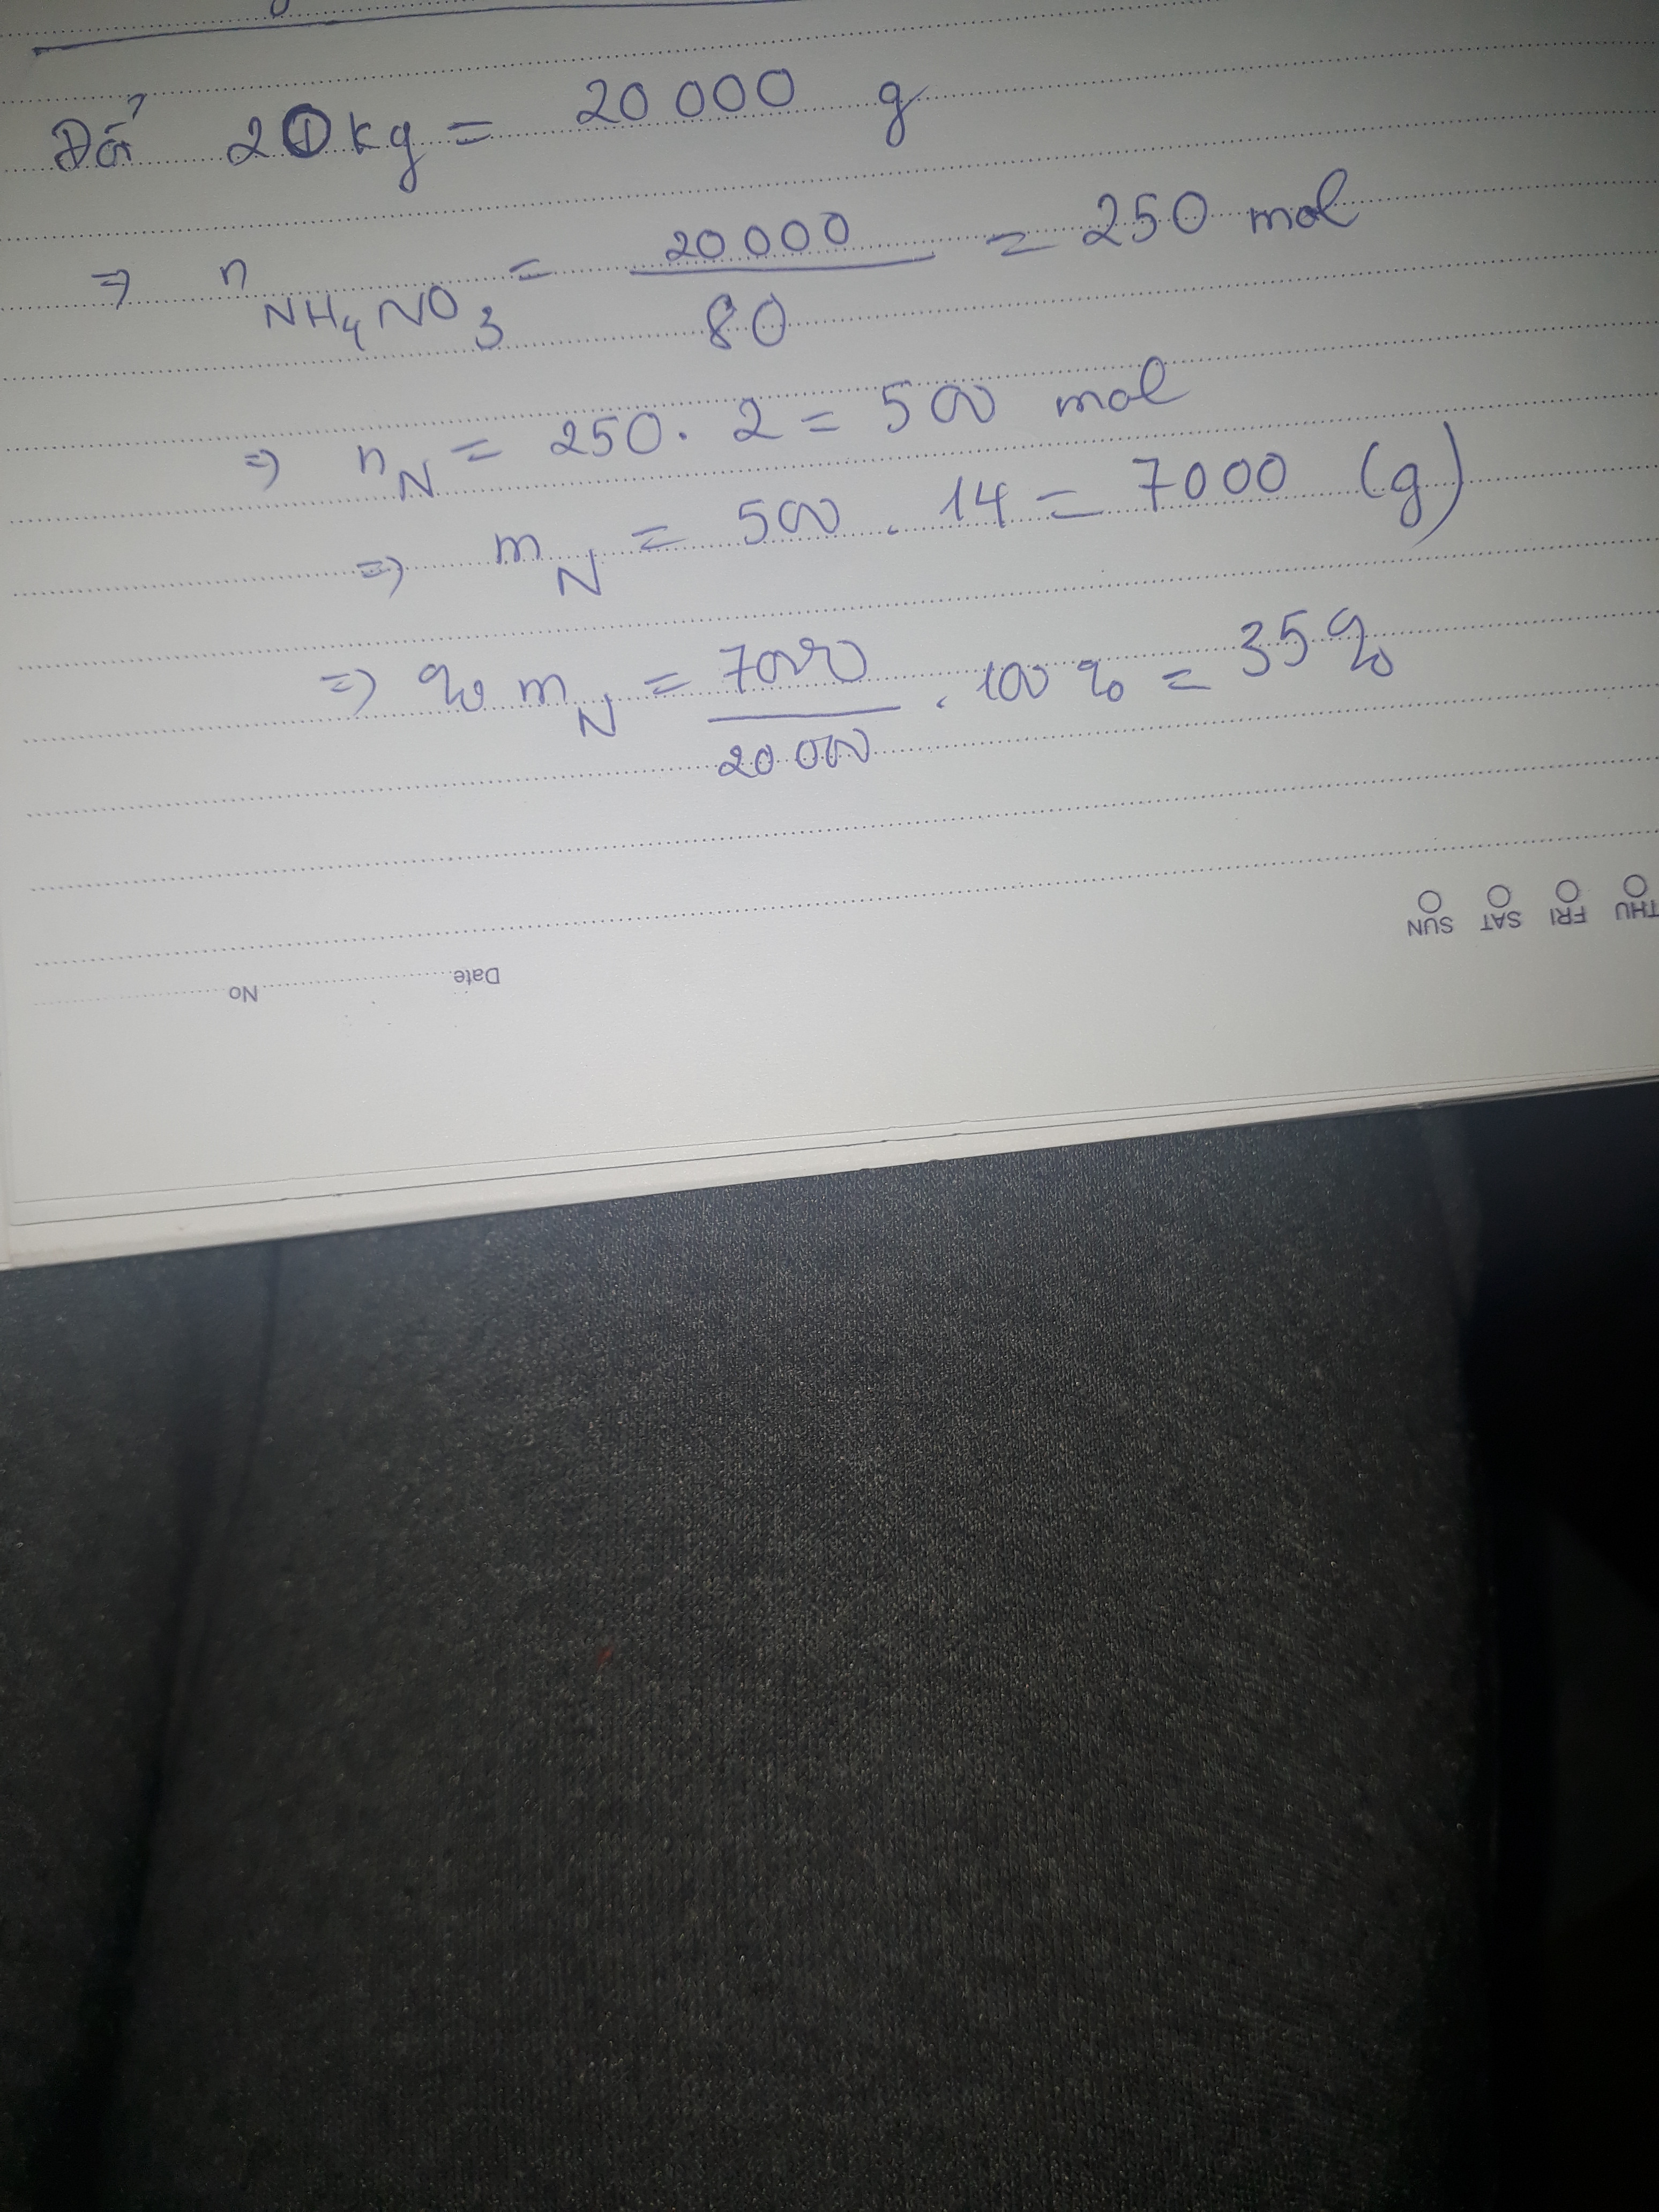 Đổi 20kg = 20 000 g
=> n NH4NO3 = 20 000 / 80 = 250 mol
=> nN = 250 . 2 = 500 mol
=> mN = 500 . 14 = 7000 (g)
=> % mN = 7000 / 20 000 . 100 % = 35 %
THU FRI SAT SUN
Date No